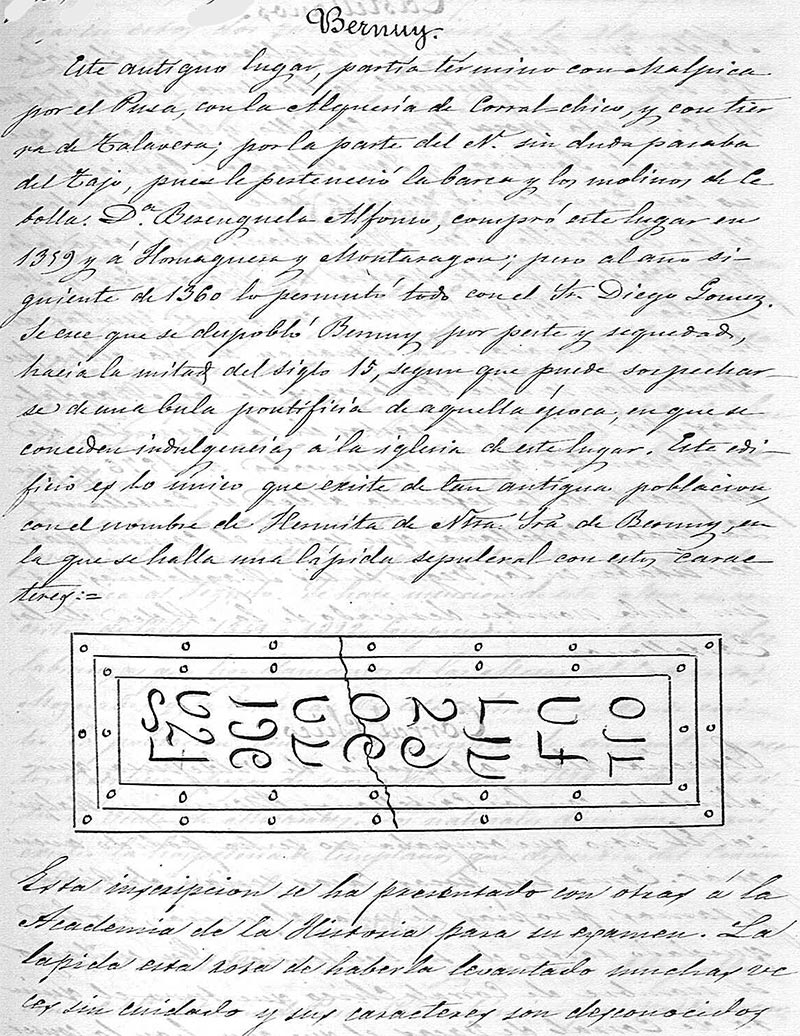 Bernuy.
Este antiguo lugar, partía término con Malpica
por el Pusa, con la Alquería de Corral-chico, y con tier
ra de Talavera; por la parte del N. sin duda pasaba
del Tajo, pues le perteneció la barca y los molinos de Ce
bolla. D.ª Berenguela Alfonso, compró este lugar en
1359 y á Hornaguera y Montaragon; pero al año si-
guiente de 1360 lo permutó todo con el Sr. Diego Gomez.
Se cree que se despobló Bernuy por peste y sequedad,
hacia la mitad del siglo 15, segun que puede sospechar-
se de una bula pontificia de aquella época, en que se
conceden indulgencias á la iglesia de este lugar. Este edi-
ficio es lo unico que existe de tan antigua poblacion,
con el nombre de Hermita de Ntra. Sra. de Bernuy, en
la que se halla una lápida sepulcral con estos carac-
teres:=
Esta inscripcion se ha presentado con otras á la
Academia de la Historia para su examen. La
lapida está rota de haberla levantado muchas ve
ces sin cuidado y sus caracteres son desconocidos